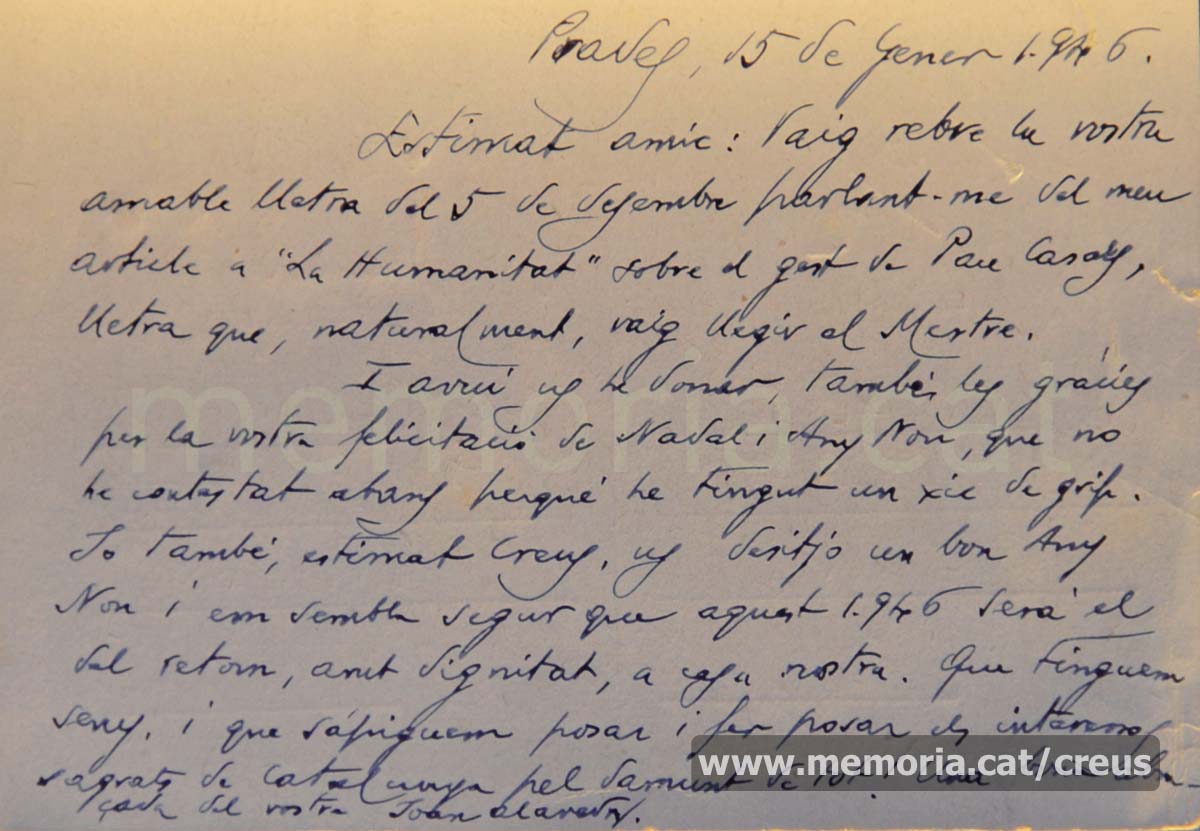 Prades, 15 de Gener 1.946.
Estimat amic: Vaig rebre la vostra
amable lletra del 5 de desembre parlant-me del meu
article a "La Humanitat" sobre el gest de Pau Casals,
lletra que, naturalment, vaig llegir al Mestre.
I avui us he donar, també, les gràcies
per la vostra felicitació de Nadal i Any Nou, que no
he contestat abans perquè he tingut un xic de grip.
Jo també, estimat Creus, us desitjo un bon Any
Nou i em sembla segur que aquest 1.946 serà el
del retorn, amb dignitat, a casa nostra. Que tinguem
seny, i que sàpiguem posar i fer posar els interessos
sagrats de Catalunya pel damunt de tot. Una
çada del vostre Joan Alavedra.
memoria.cat
www.memoria.cat/creus